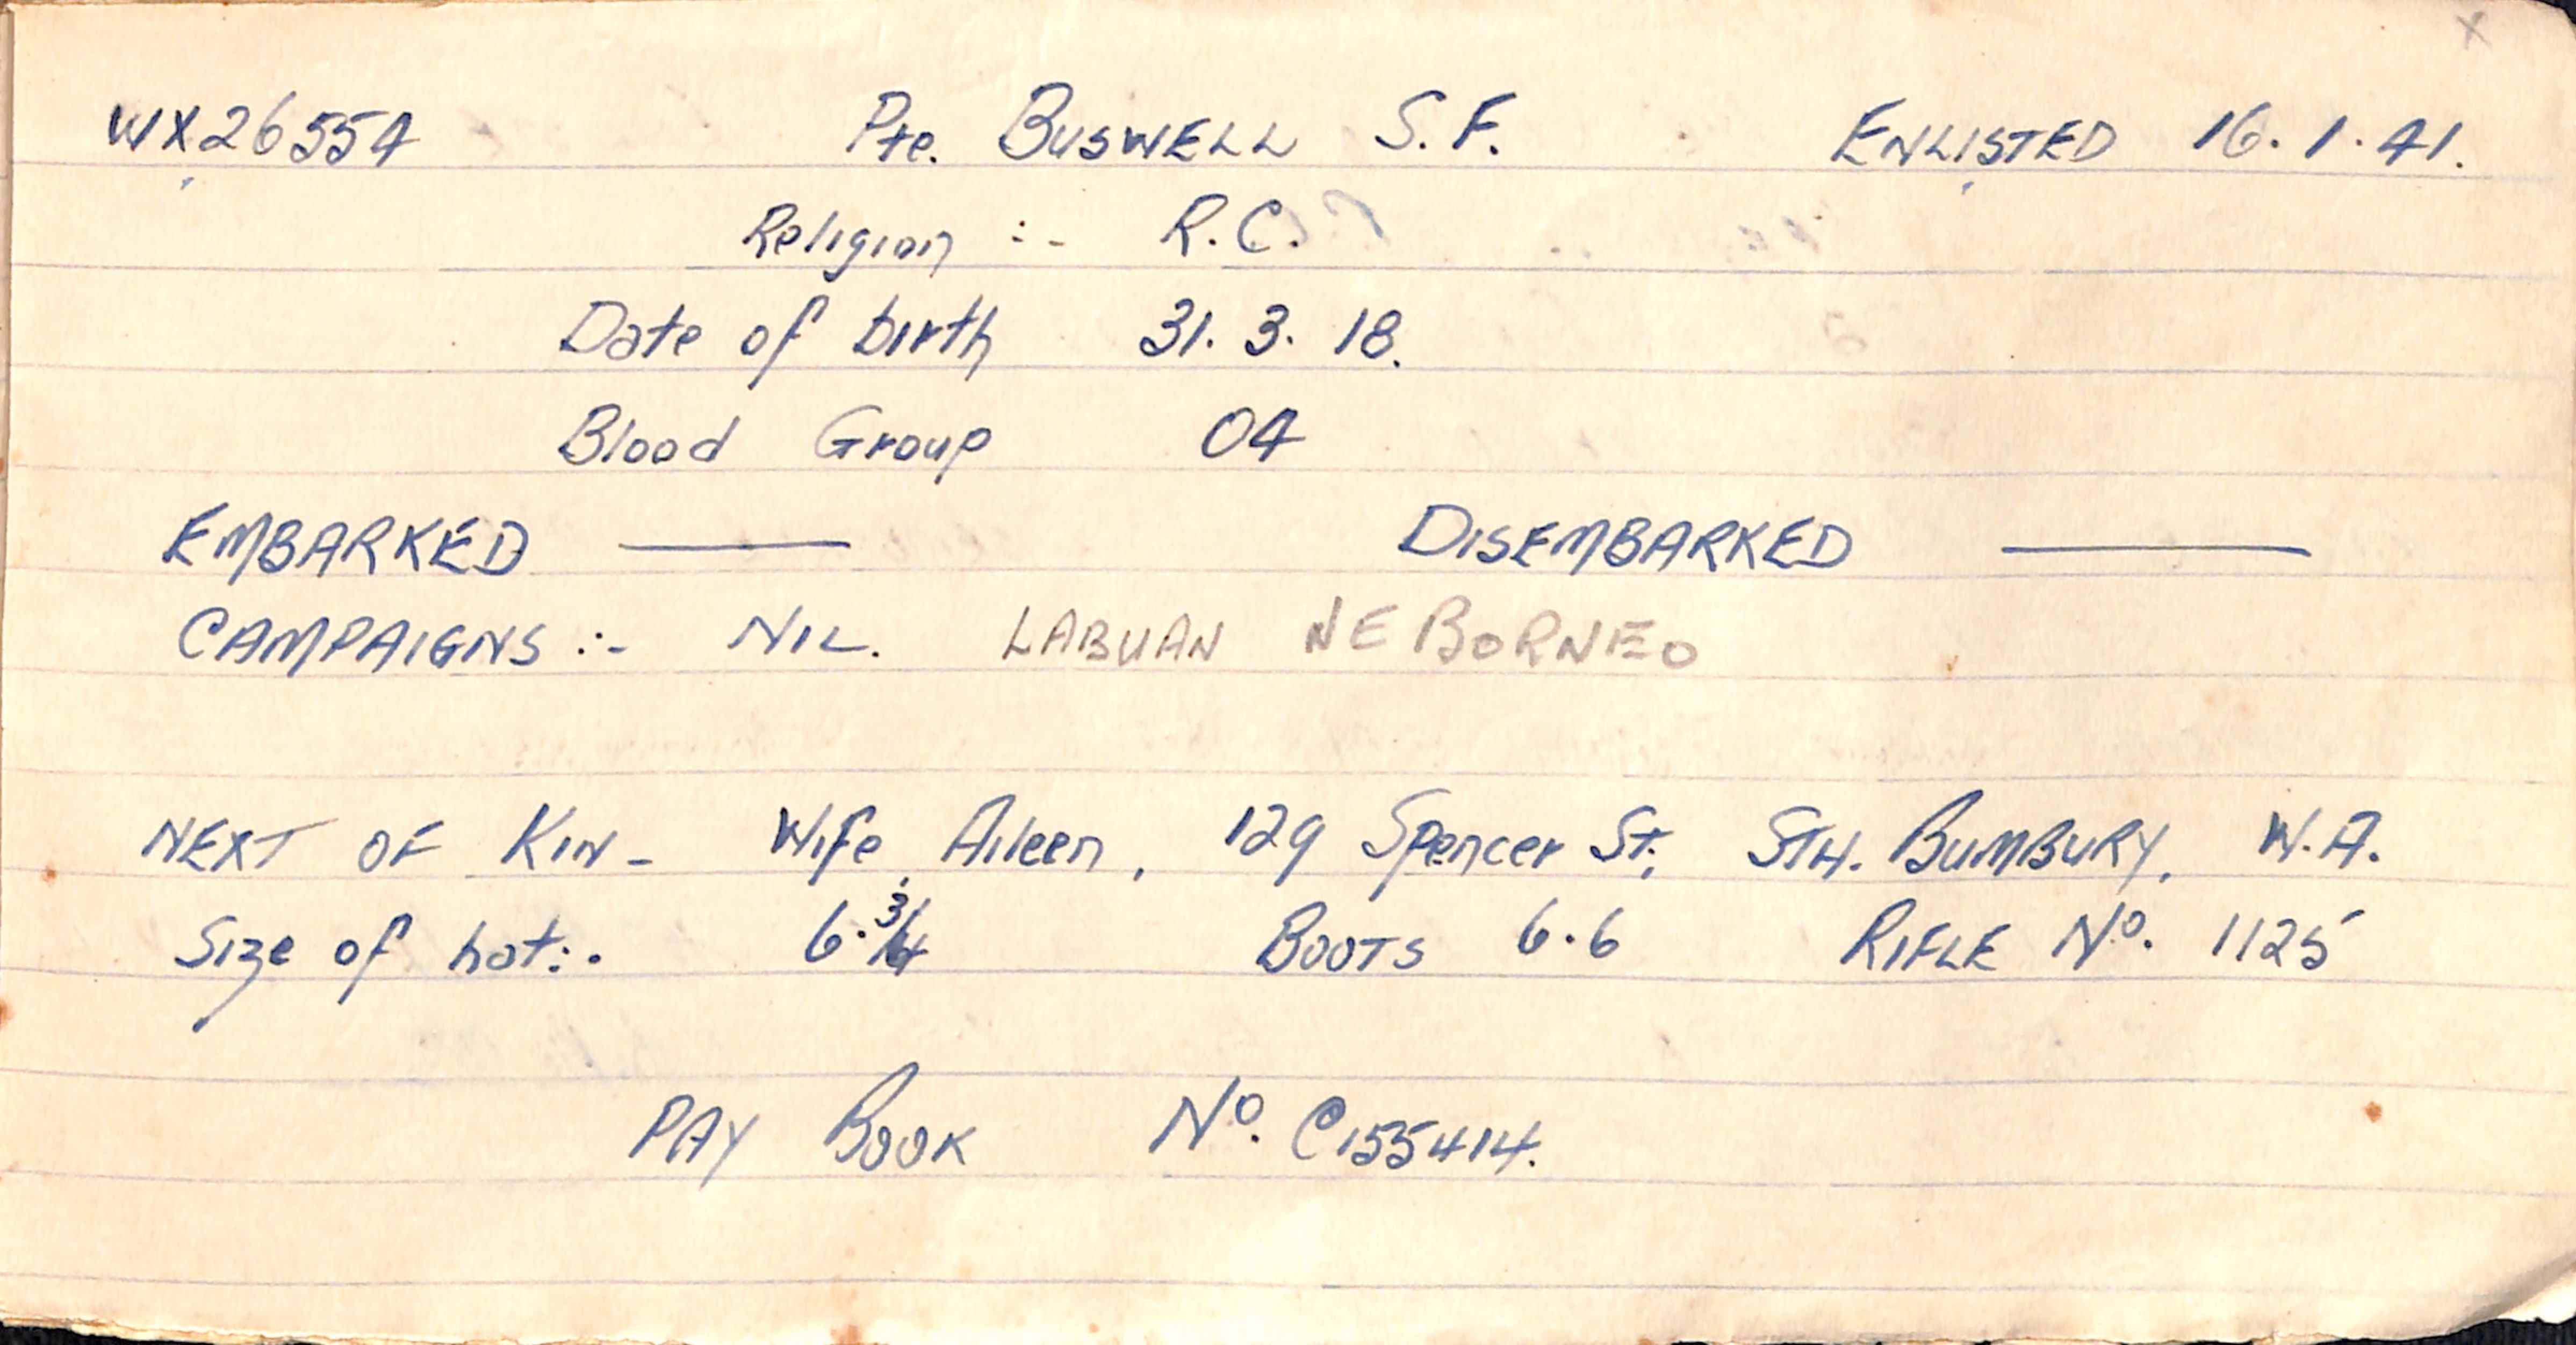 X
WX26554 Pte. BUSWELL S.F. ENLISTED 16.1.41.
Religion :- R.C.
Date of birth 31.3.18.
Blood Group O4
EMBARKED —— DISEMBARKED ——
CAMPAIGNS :- NIL. LABUAN NE BORNEO
NEXT OF KIN - Wife Aileen, 129 Spencer St, STH. BUMBURY, W.A.
Size of hat:. 6.3/4 BOOTS 6.6 RIFLE No. 1125
PAY BOOK No. C155414.